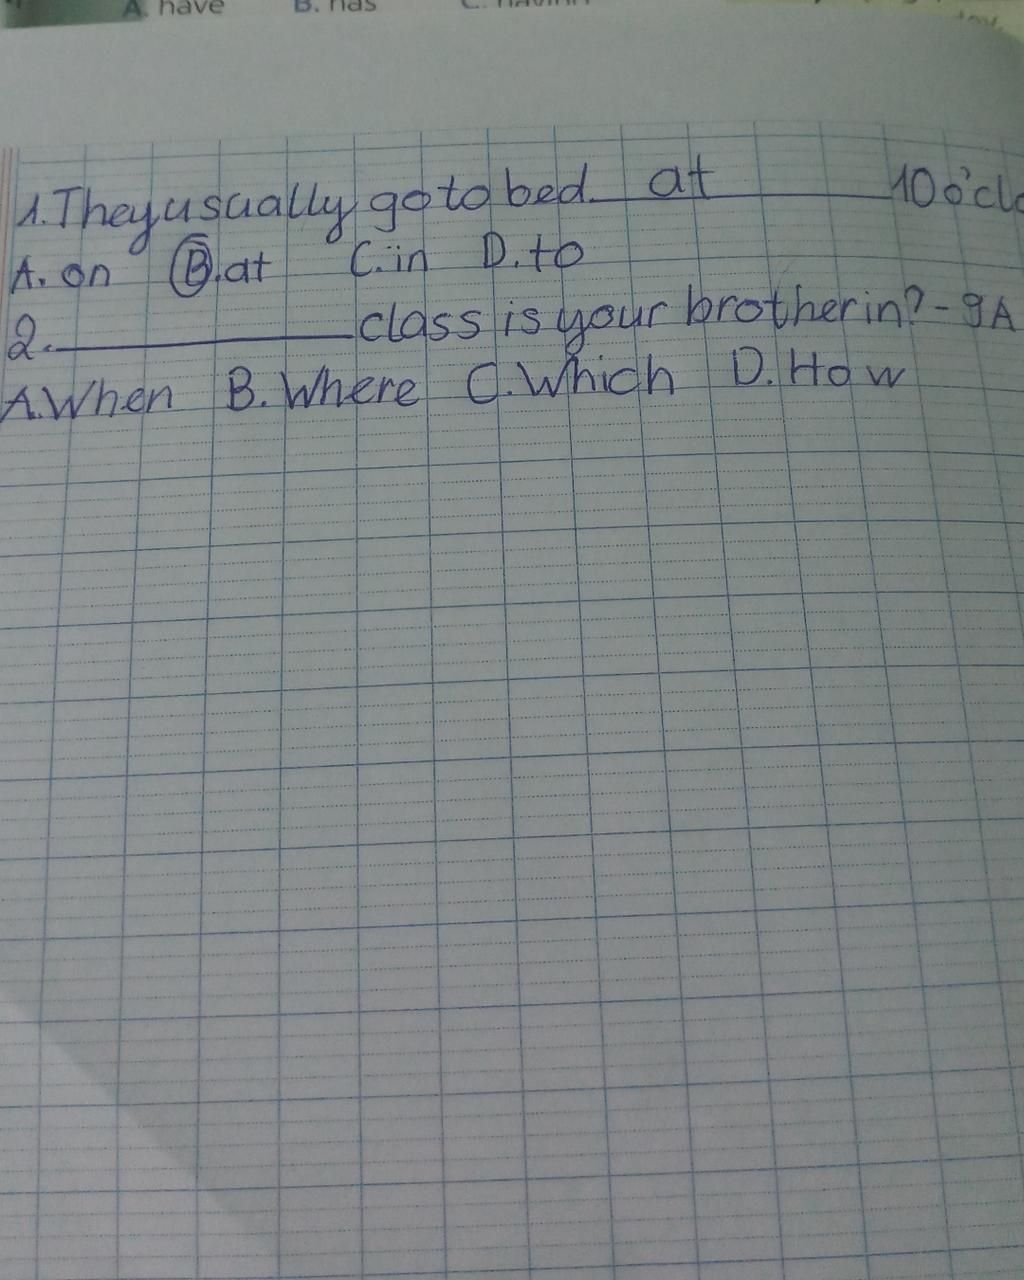 A. have B. has
1. They usually go to bed at 10 o'clo
A. on B. at C. in D. to
2. class is your brother in? - 9A
A. When B. Where C. Which D. How